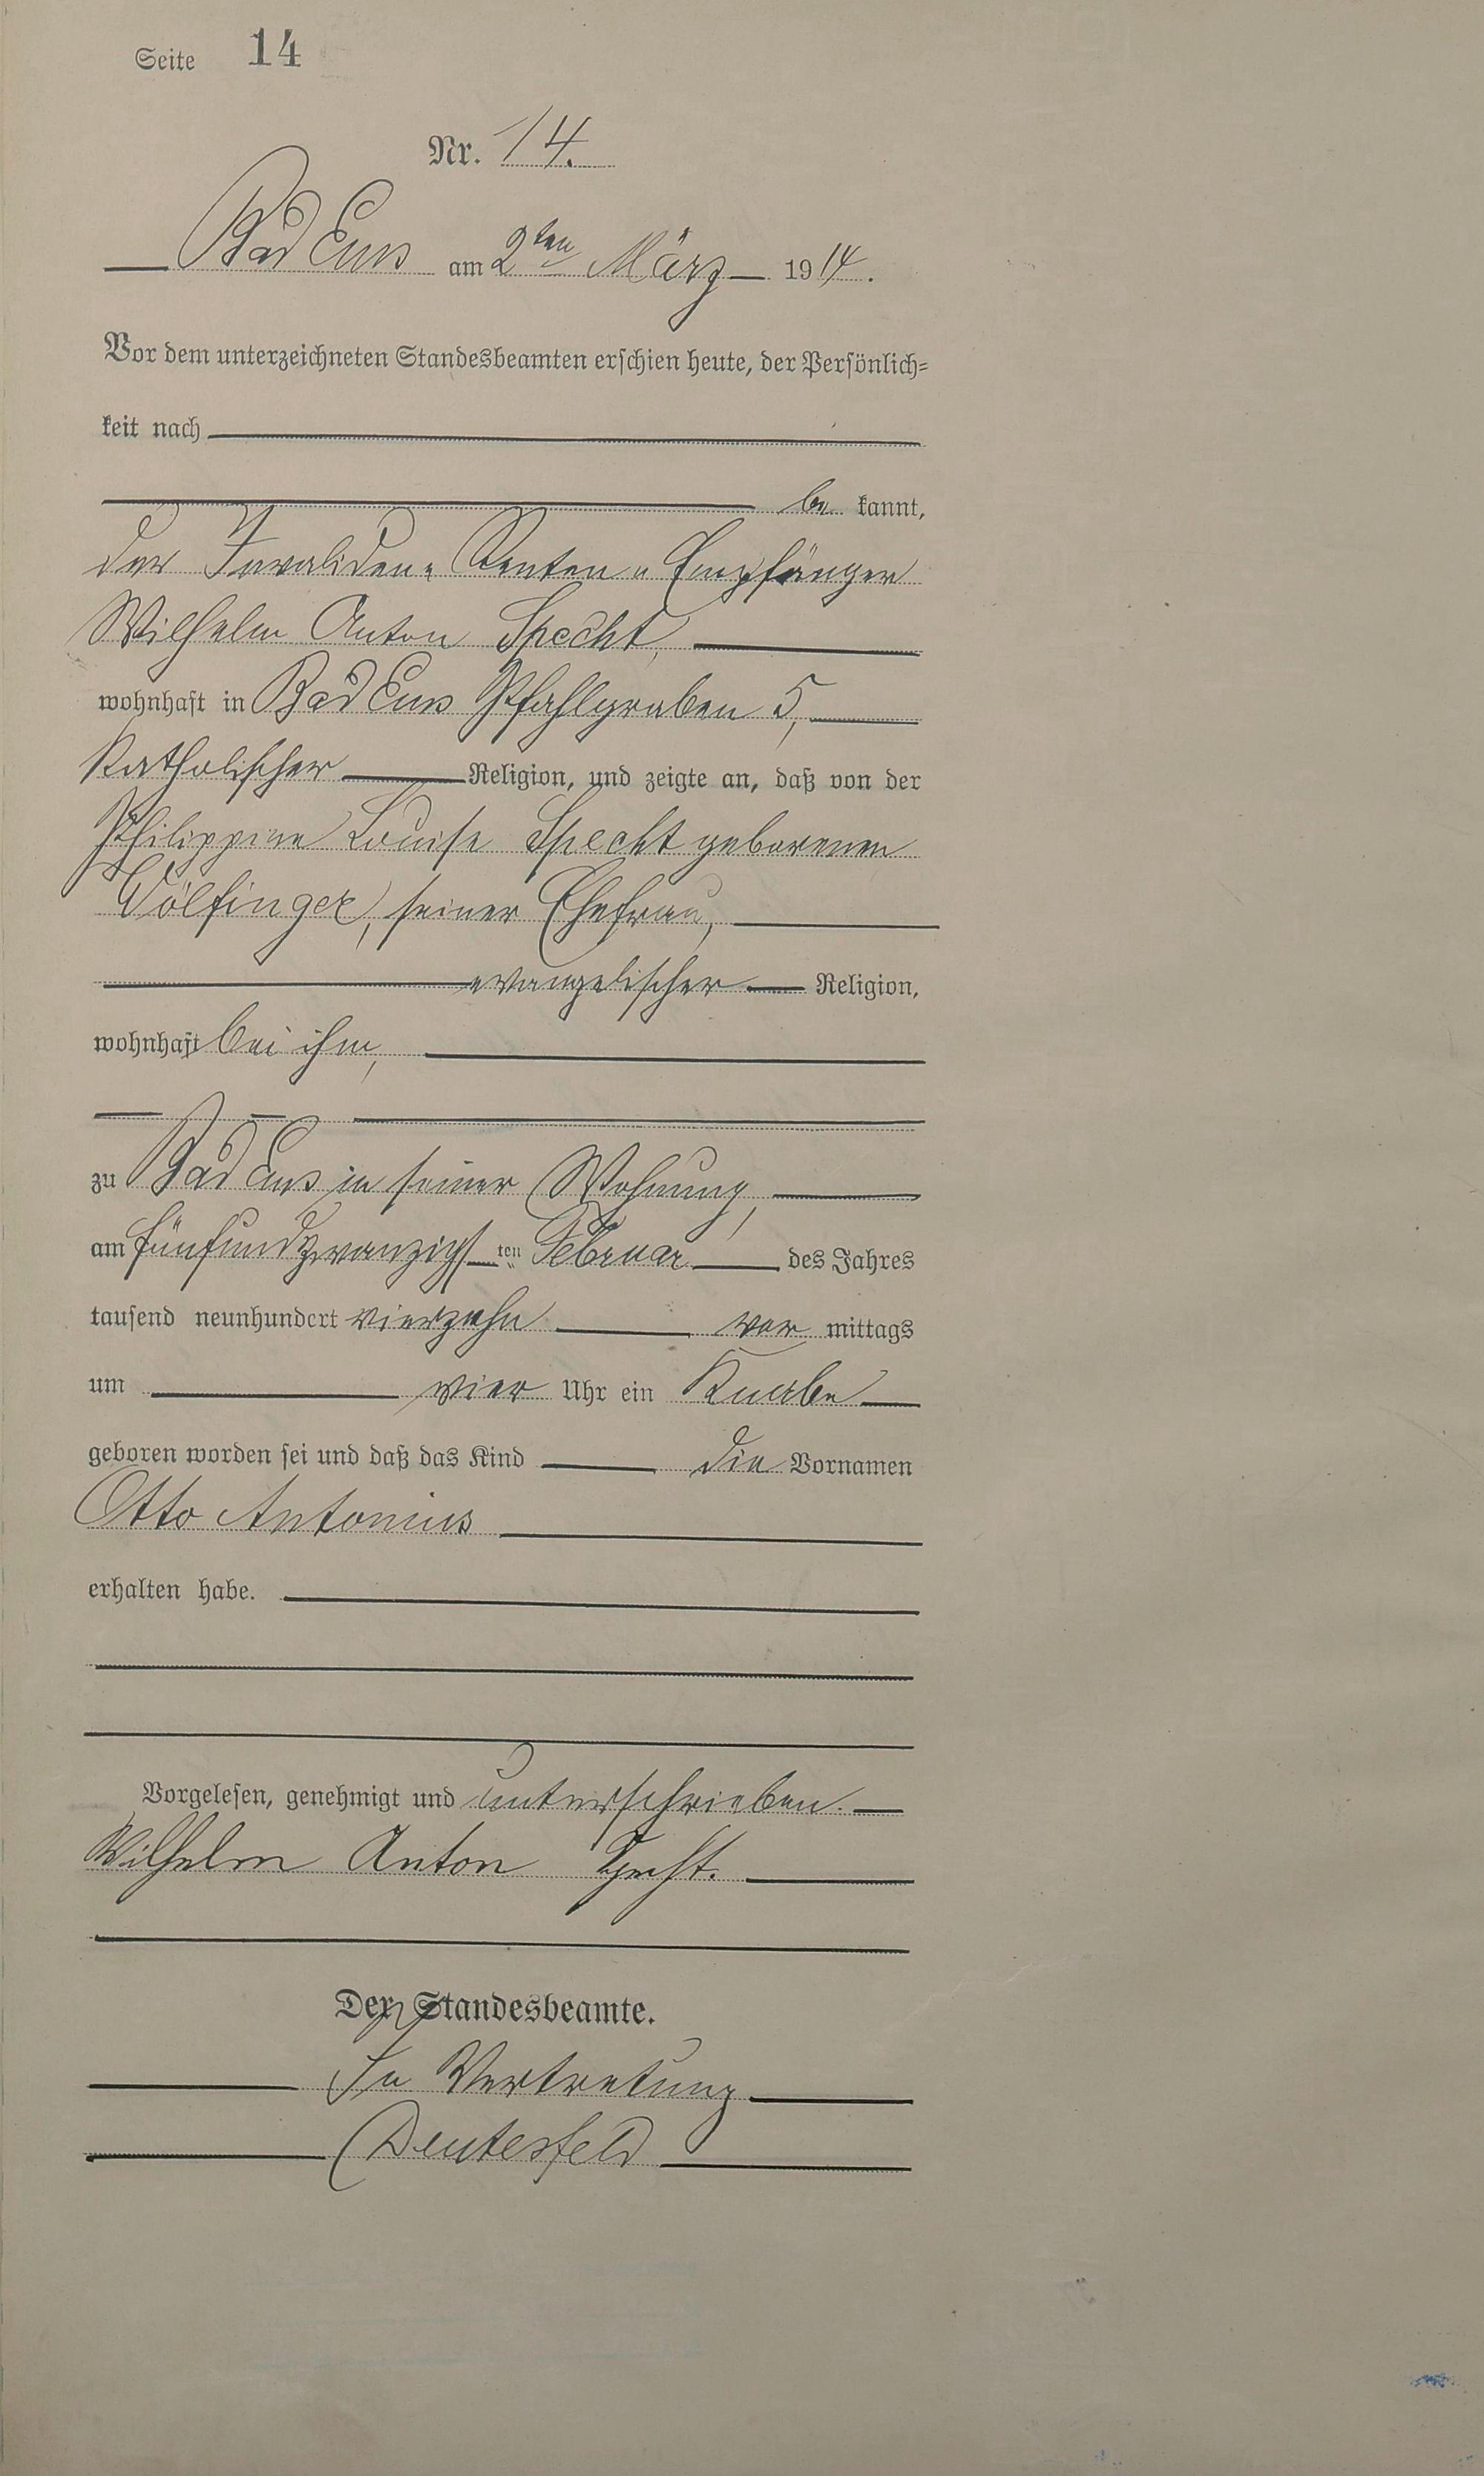 Seite 14
Nr. 14.
Bad Ems am 2ten März 1914.
Vor dem unterzeichneten Standesbeamten erschien heute, der Persönlich=
keit nach
be kannt,
der Invaliden-Renten-Empfänger
Wilhelm Anton Specht,
wohnhaft in Bad Ems Pfahlgraben 5,
Katholischer Religion, und zeigte an, daß von der
Philippine Louise Specht geborenen
Wölfinger, seiner Ehefrau,
evangelischer Religion,
wohnhaft bei ihm,
zu Bad Ems in seiner Wohnung,
am fünfundzwanzigsten Februar des Jahres
tausend neunhundert vierzehn vor mittags
um vier Uhr ein Knabe
geboren worden sei und daß das Kind die Vornamen
Otto Antonius
erhalten habe.
Vorgelesen, genehmigt und unterschrieben.
Wilhelm Anton Specht.
Der Standesbeamte.
In Vertretung